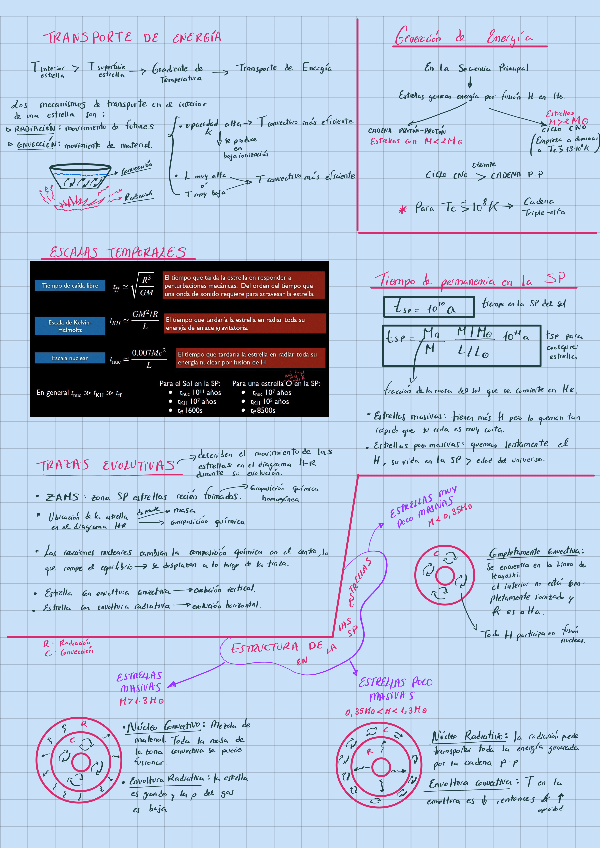 TRANSPORTE DE ENERGÍA
T interior estrella > T superficie estrella → Gradiente de Temperatura → Transporte de Energía
Los mecanismos de transporte en el interior
de una estrella son:
RADIACIÓN: movimiento de fotones
CONVECCIÓN: movimiento de material.
Convección
Radiación
opacidad alta → T convectivo más eficiente
k
se produce
en
baja ionización
L muy alta
o
T muy baja
T convectivo más eficiente
Generación de Energía
En la Secuencia Principal
Estrellas generan energía por fusión H en He.
CADENA PROTÓN-PROTÓN
ESTRELLAS CON M < 2M⊙
Estrellas
M > 2M⊙
CICLO CNO
(Empieza a dominar
a Tc
CICLO CNO > CADENA P P
* Para Tc ≥ 10⁸ K → Cadena
Triple-alfa
ESCALAS TEMPORALES
Tiempo de caída libre
El tiempo que tarda la estrella en responder a
perturbaciones mecánicas. Del orden del tiempo que
una onda de sonido requiere para atravesar la estrella.
Escala de Kelvin
Helmholtz
El tiempo que tardaría la estrella en radiar toda su
energía de enlace gravitatoria.
Escala nuclear
El tiempo que tardaría la estrella en radiar toda su
energía nuclear por fusión de H
En general
Para el Sol en la SP:
Para una estrella O en la SP:
años
años
1600s
años
años
8500s
Tiempo de permanencia en la SP
t SP = 10¹⁰ a
tiempo en la SP del sol
t SP = M/M⊙ L/L⊙ 10¹⁰ a
t SP para
cualquier
estrella
fracción de la masa del sol que se convierte en He.
Estrellas masivas: tienen más H pero lo queman tan
rápido que su vida es muy corta.
Estrellas poco masivas: queman lentamente el
H, su vida en la SP > edad del universo.
TRAZAS EVOLUTIVAS
describen el movimiento de las
estrellas en el diagrama H-R
durante su evolución.
ZAMS: zona SP estrellas recién formadas.
composición química
homogénea
Ubicación de la estrella
en el diagrama HR
depende
masa
composición química
Las reacciones nucleares cambian la composición química en el centro, lo
que rompe el equilibrio → se desplazan a lo largo de la traza.
Estrella con envoltura convectiva → evolución vertical.
Estrella con envoltura radiativa → evolución horizontal.
R: Radiación
C: Convección
ESTRUCTURA DE LAS ESTRELLAS
EN LA SP
ESTRELLAS MUY
POCO MASIVAS
M < 0,35M⊙
C
Completamente Convectiva:
Se encuentra en la línea de
Hayashi.
el interior no está com
pletamente ionizado y
k es alta.
Todo H participa en fusión
nuclear.
ESTRELLAS
MASIVAS
M > 1.3M⊙
R
C
Núcleo Convectivo: Mezcla de
material. Toda la masa de
la zona convectiva se puede
fusionar
Envoltura Radiativa: la estrella
es grande y la ρ del gas
es baja
ESTRELLAS POCO
MASIVAS
0,35M⊙ < M < 1,3M⊙
C
R
Núcleo Radiativo: La radiación puede
transportar toda la energía generada
por la cadena P P
Envoltura convectiva: T en la
envoltura es ↓, entonces k ↑
opacidad